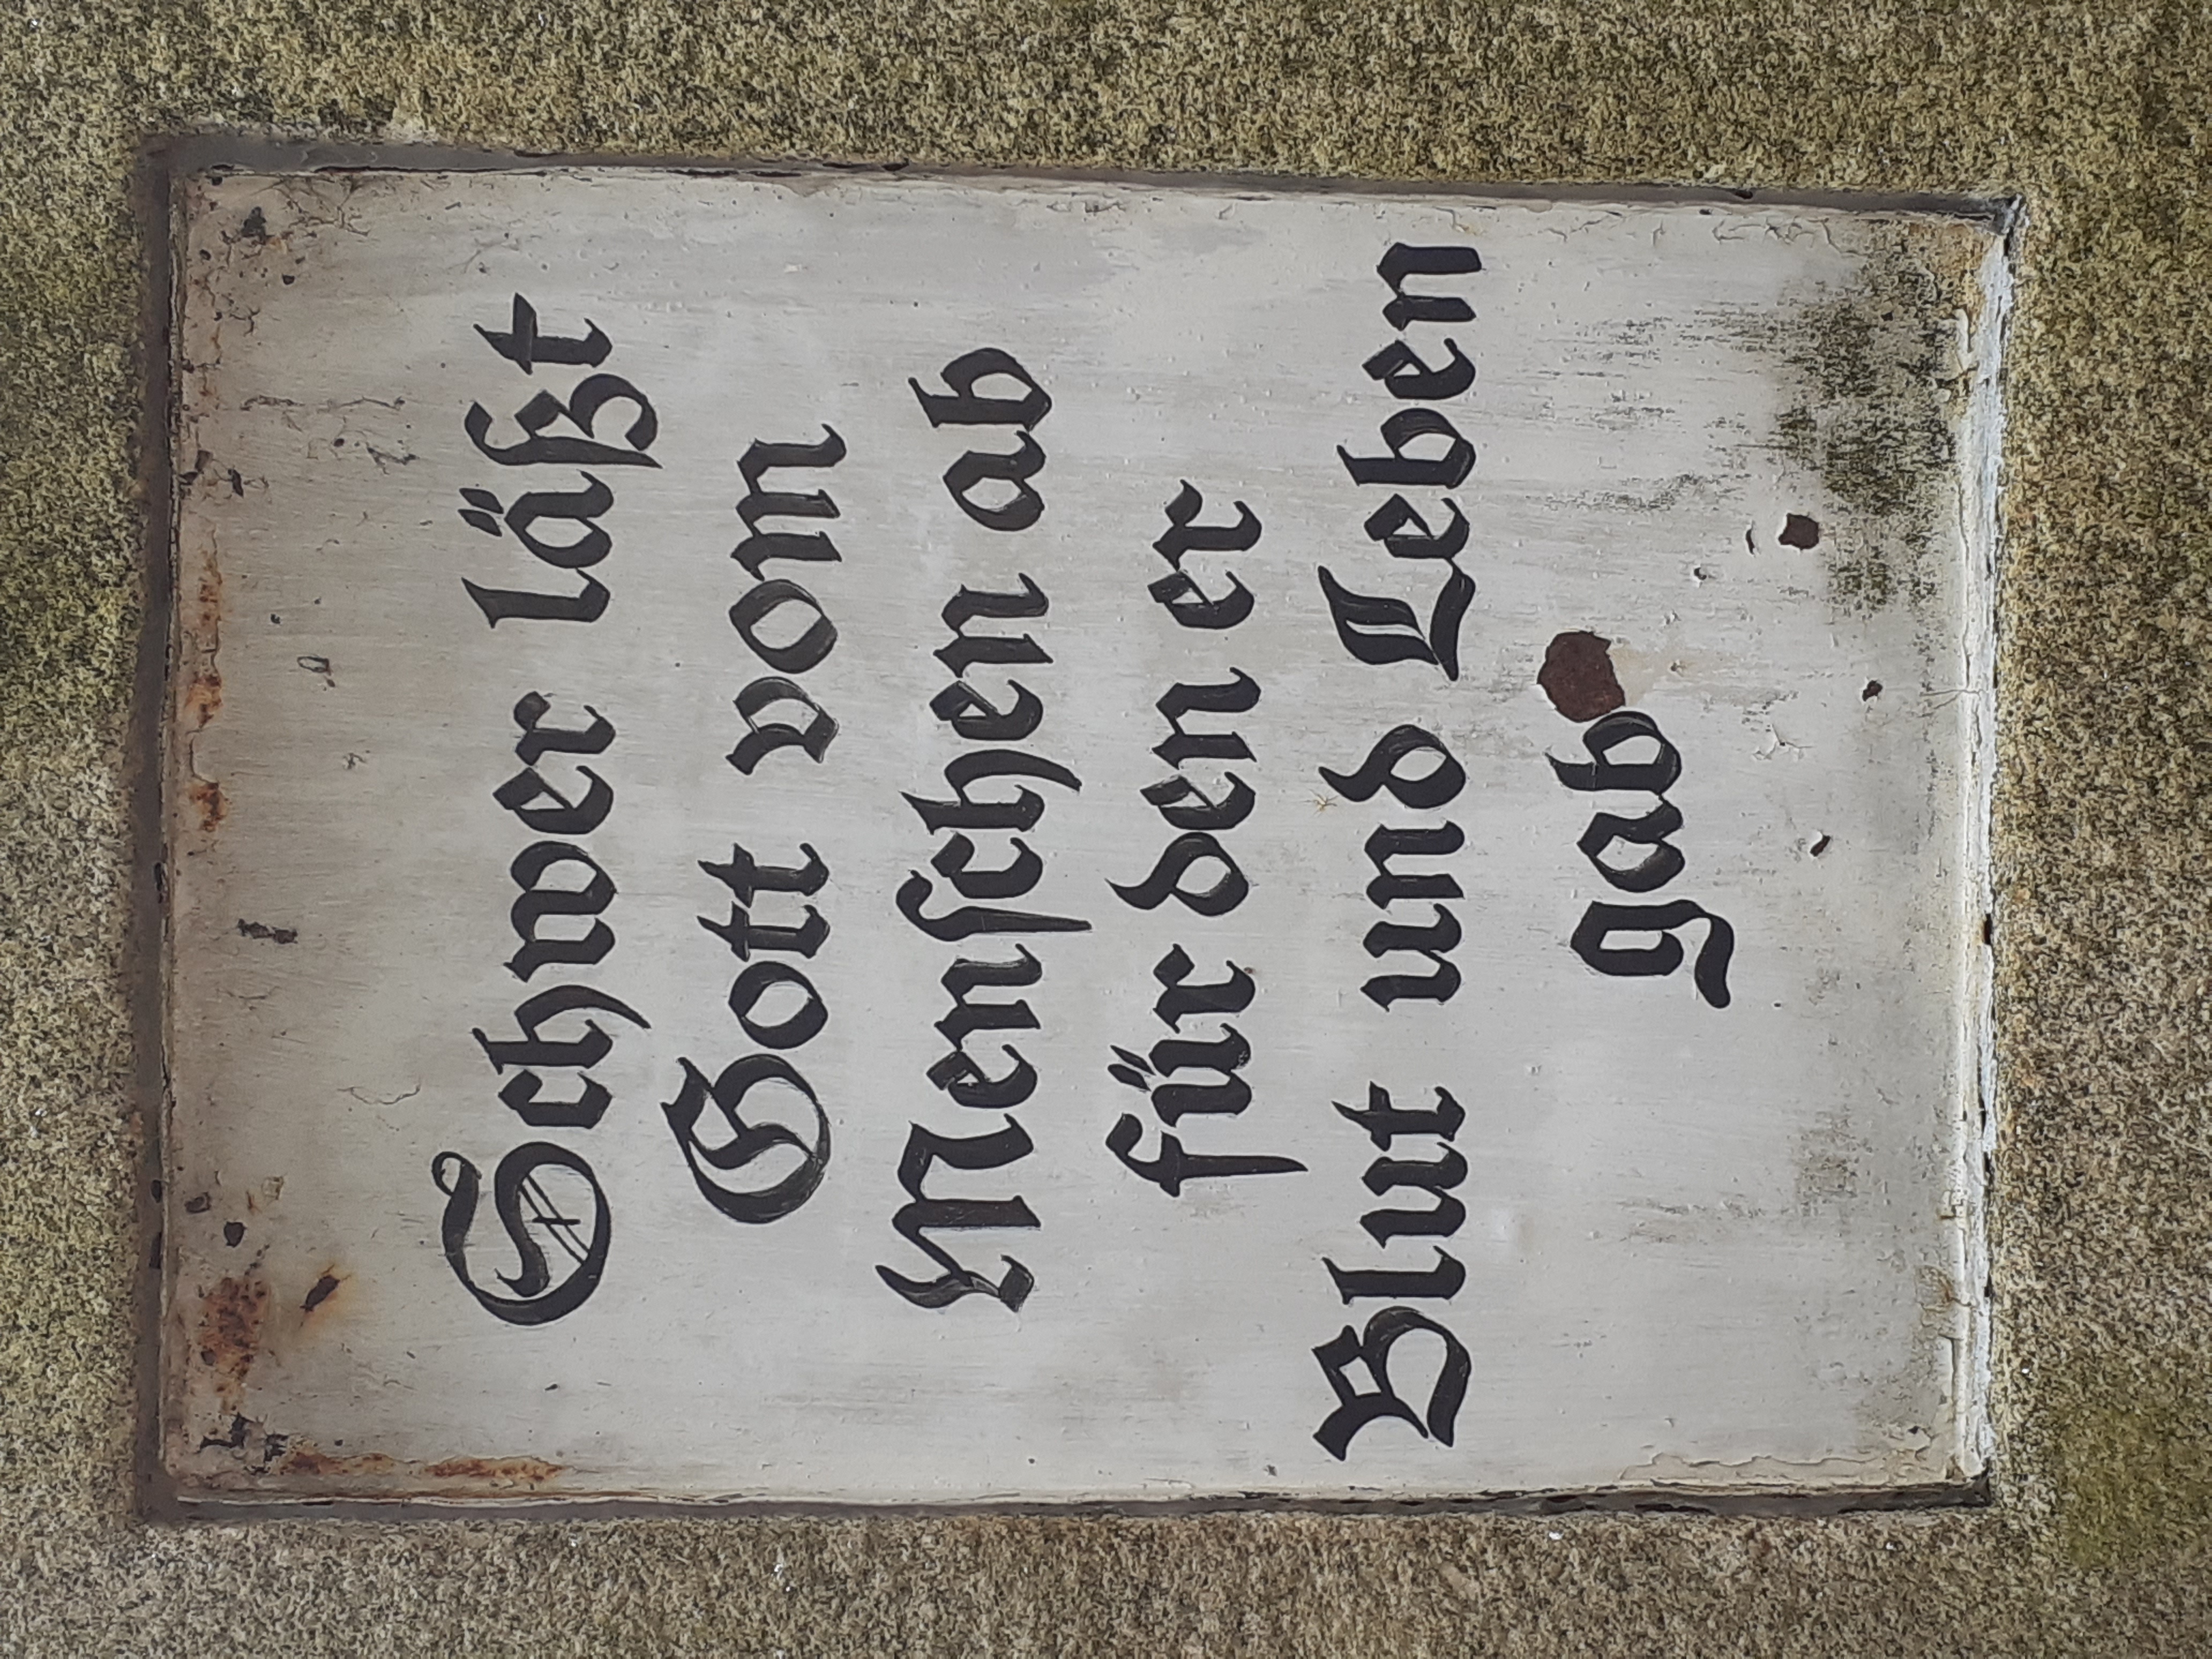 Schwer läßt
Gott vom
Menschen ab
für den er
Blut und Leben
gab